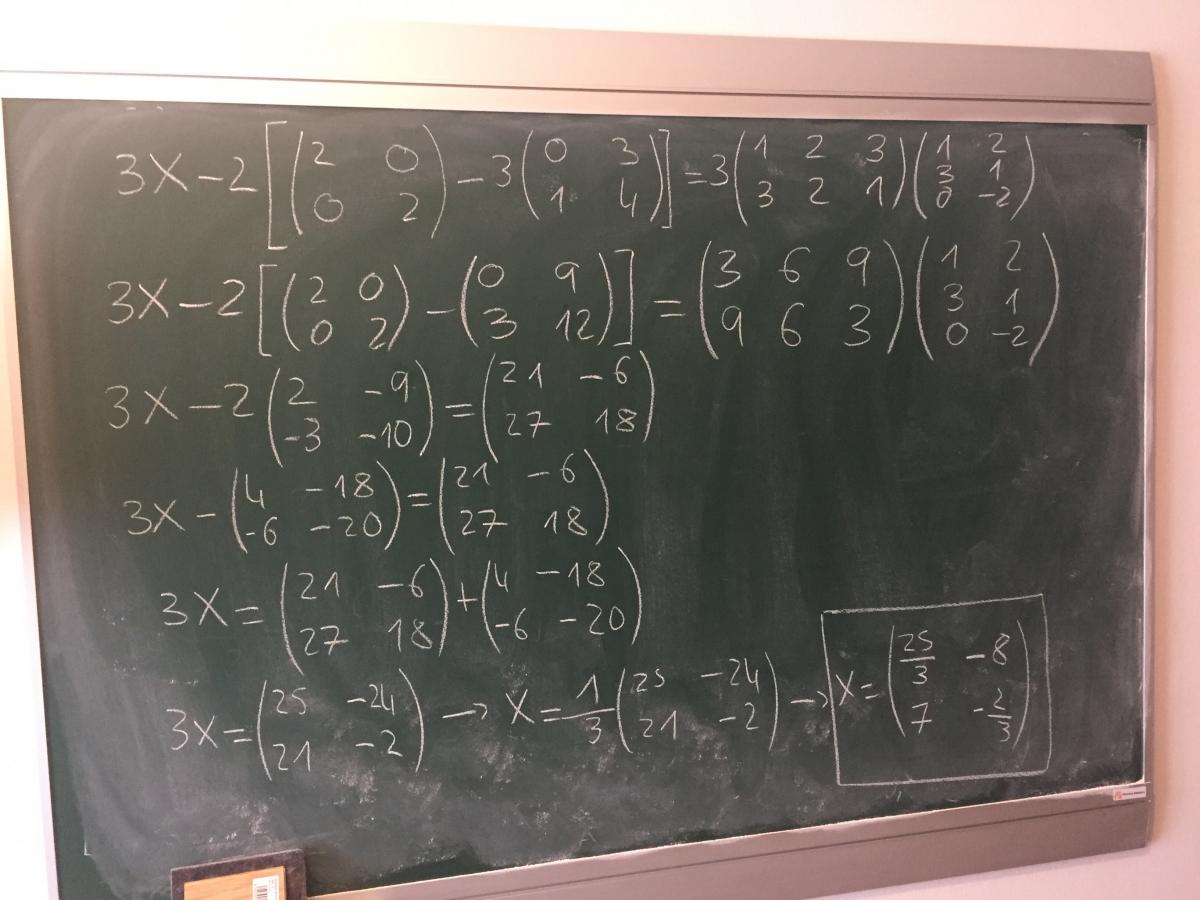 3X-2[(2 0; 0 2)-3(0 3; 1 4)]=3(1 2 3; 3 2 1)(1 2; 3 1; 0 -2)
3X-2[(2 0; 0 2)-(0 9; 3 12)]=(3 6 9; 9 6 3)(1 2; 3 1; 0 -2)
3X-2(2 -9; -3 -10)=(21 -6; 27 18)
3X-(4 -18; -6 -20)=(21 -6; 27 18)
3X=(21 -6; 27 18)+(4 -18; -6 -20)
3X=(25 -24; 21 -2) → X=1/3(25 -24; 21 -2) → X=(25/3 -8; 7 -2/3)